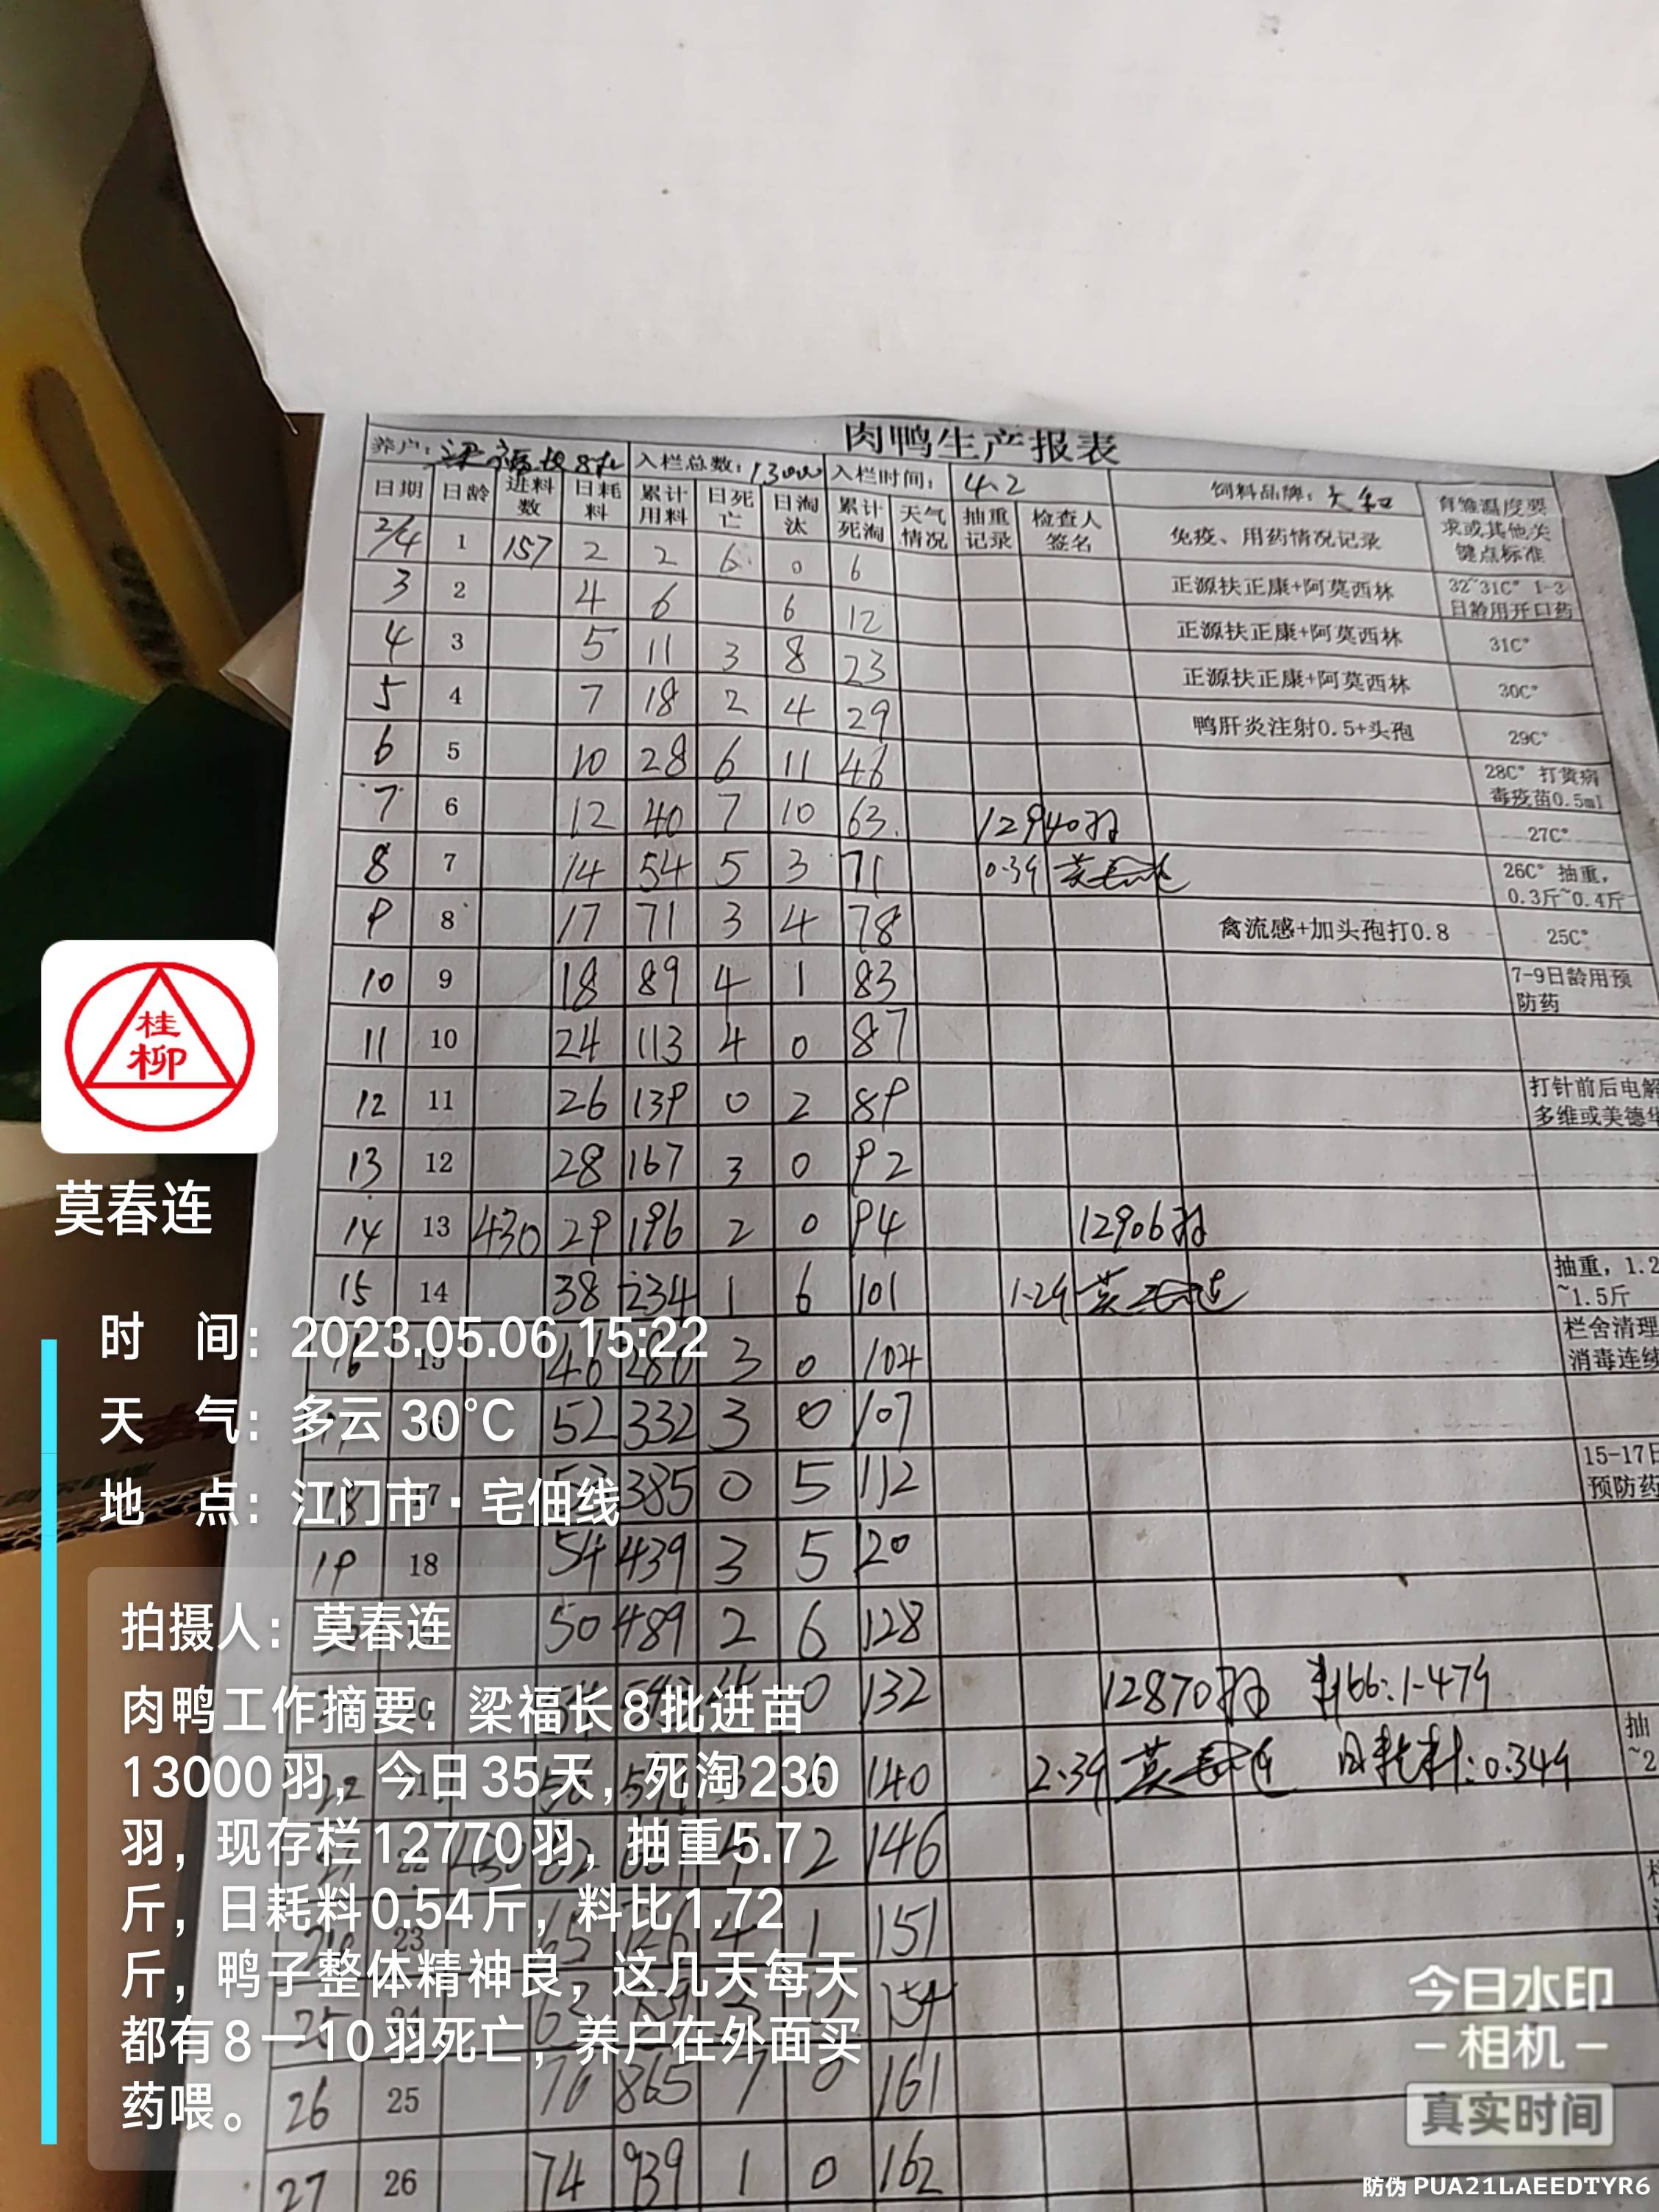 肉鸭生产报表
养户: 梁福长8批 入栏总数: 13000 入栏时间: 4.2 饲料品牌:
日期 日龄 进料数 日耗料 累计用料 日死亡 日淘汰 累计死淘 天气情况 抽重记录 检查人签名 免疫、用药情况记录 育雏温度要求或其他关键点标准
2/4 1 157 2 2 6 0 6
3 2 4 6 6 12 正源扶正康+阿莫西林 32~31C° 1-3日龄用开口药
4 3 5 11 3 8 23 正源扶正康+阿莫西林 31C°
5 4 7 18 2 4 29 正源扶正康+阿莫西林 30C°
6 5 10 28 6 11 46 鸭肝炎注射0.5+头孢 29C°
7 6 12 40 7 10 63 12940羽 28C° 打黄病毒疫苗0.5ml
27C°
8 7 14 54 5 3 71 0.39 莫春连 26C° 抽重,0.3斤~0.4斤
9 8 17 71 3 4 78 禽流感+加头孢打0.8 25C°
10 9 18 89 4 1 83 7-9日龄用预防药
11 10 24 113 4 0 87
12 11 26 139 0 2 89 打针前后电解多维或美德华
13 12 28 167 3 0 92
14 13 430 29 196 2 0 94 12906羽
15 14 38 234 1 6 101 1.2斤 莫春连 抽重,1.2~1.5斤
16 15 46 280 3 0 104 栏舍清理消毒连续
52 332 3 0 107
18 17 53 385 0 5 112 15-17日预防药
19 18 54 439 3 5 120
50 489 2 6 128
0 132 12870羽 料比:1.47斤
22 140 2.3斤 莫春连 日耗料:0.34斤 抽
22 430 62 2 146
23 65 4 1 151
25 24 63 154
26 25 70 865 7 0 161
27 26 74 939 1 0 162
桂
柳
莫春连
时 间: 2023.05.06 15:22
天 气: 多云 30°C
地 点: 江门市·宅佃线
拍摄人: 莫春连
肉鸭工作摘要: 梁福长8批进苗
13000羽,今日35天,死淘230
羽,现存栏12770羽,抽重5.7
斤,日耗料0.54斤,料比1.72
斤,鸭子整体精神良,这几天每天
都有8一10羽死亡,养户在外面买
药喂。
今日水印
相机
真实时间
防伪 PUA21LAEEDTYR6